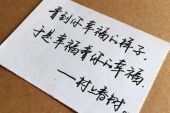 看到你幸福的样子，
于是幸福着你的幸福.
——村上春树.